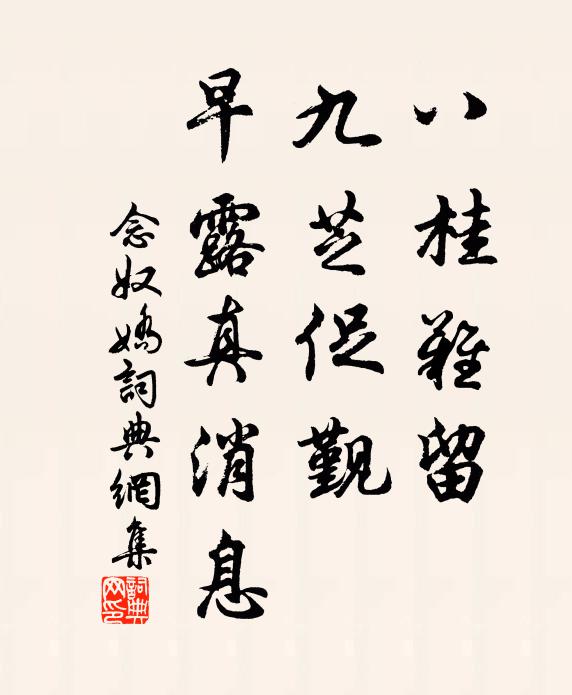 八桂難留
九芝促觐
早露真消息
念奴嬌詞典網集
詞典网印